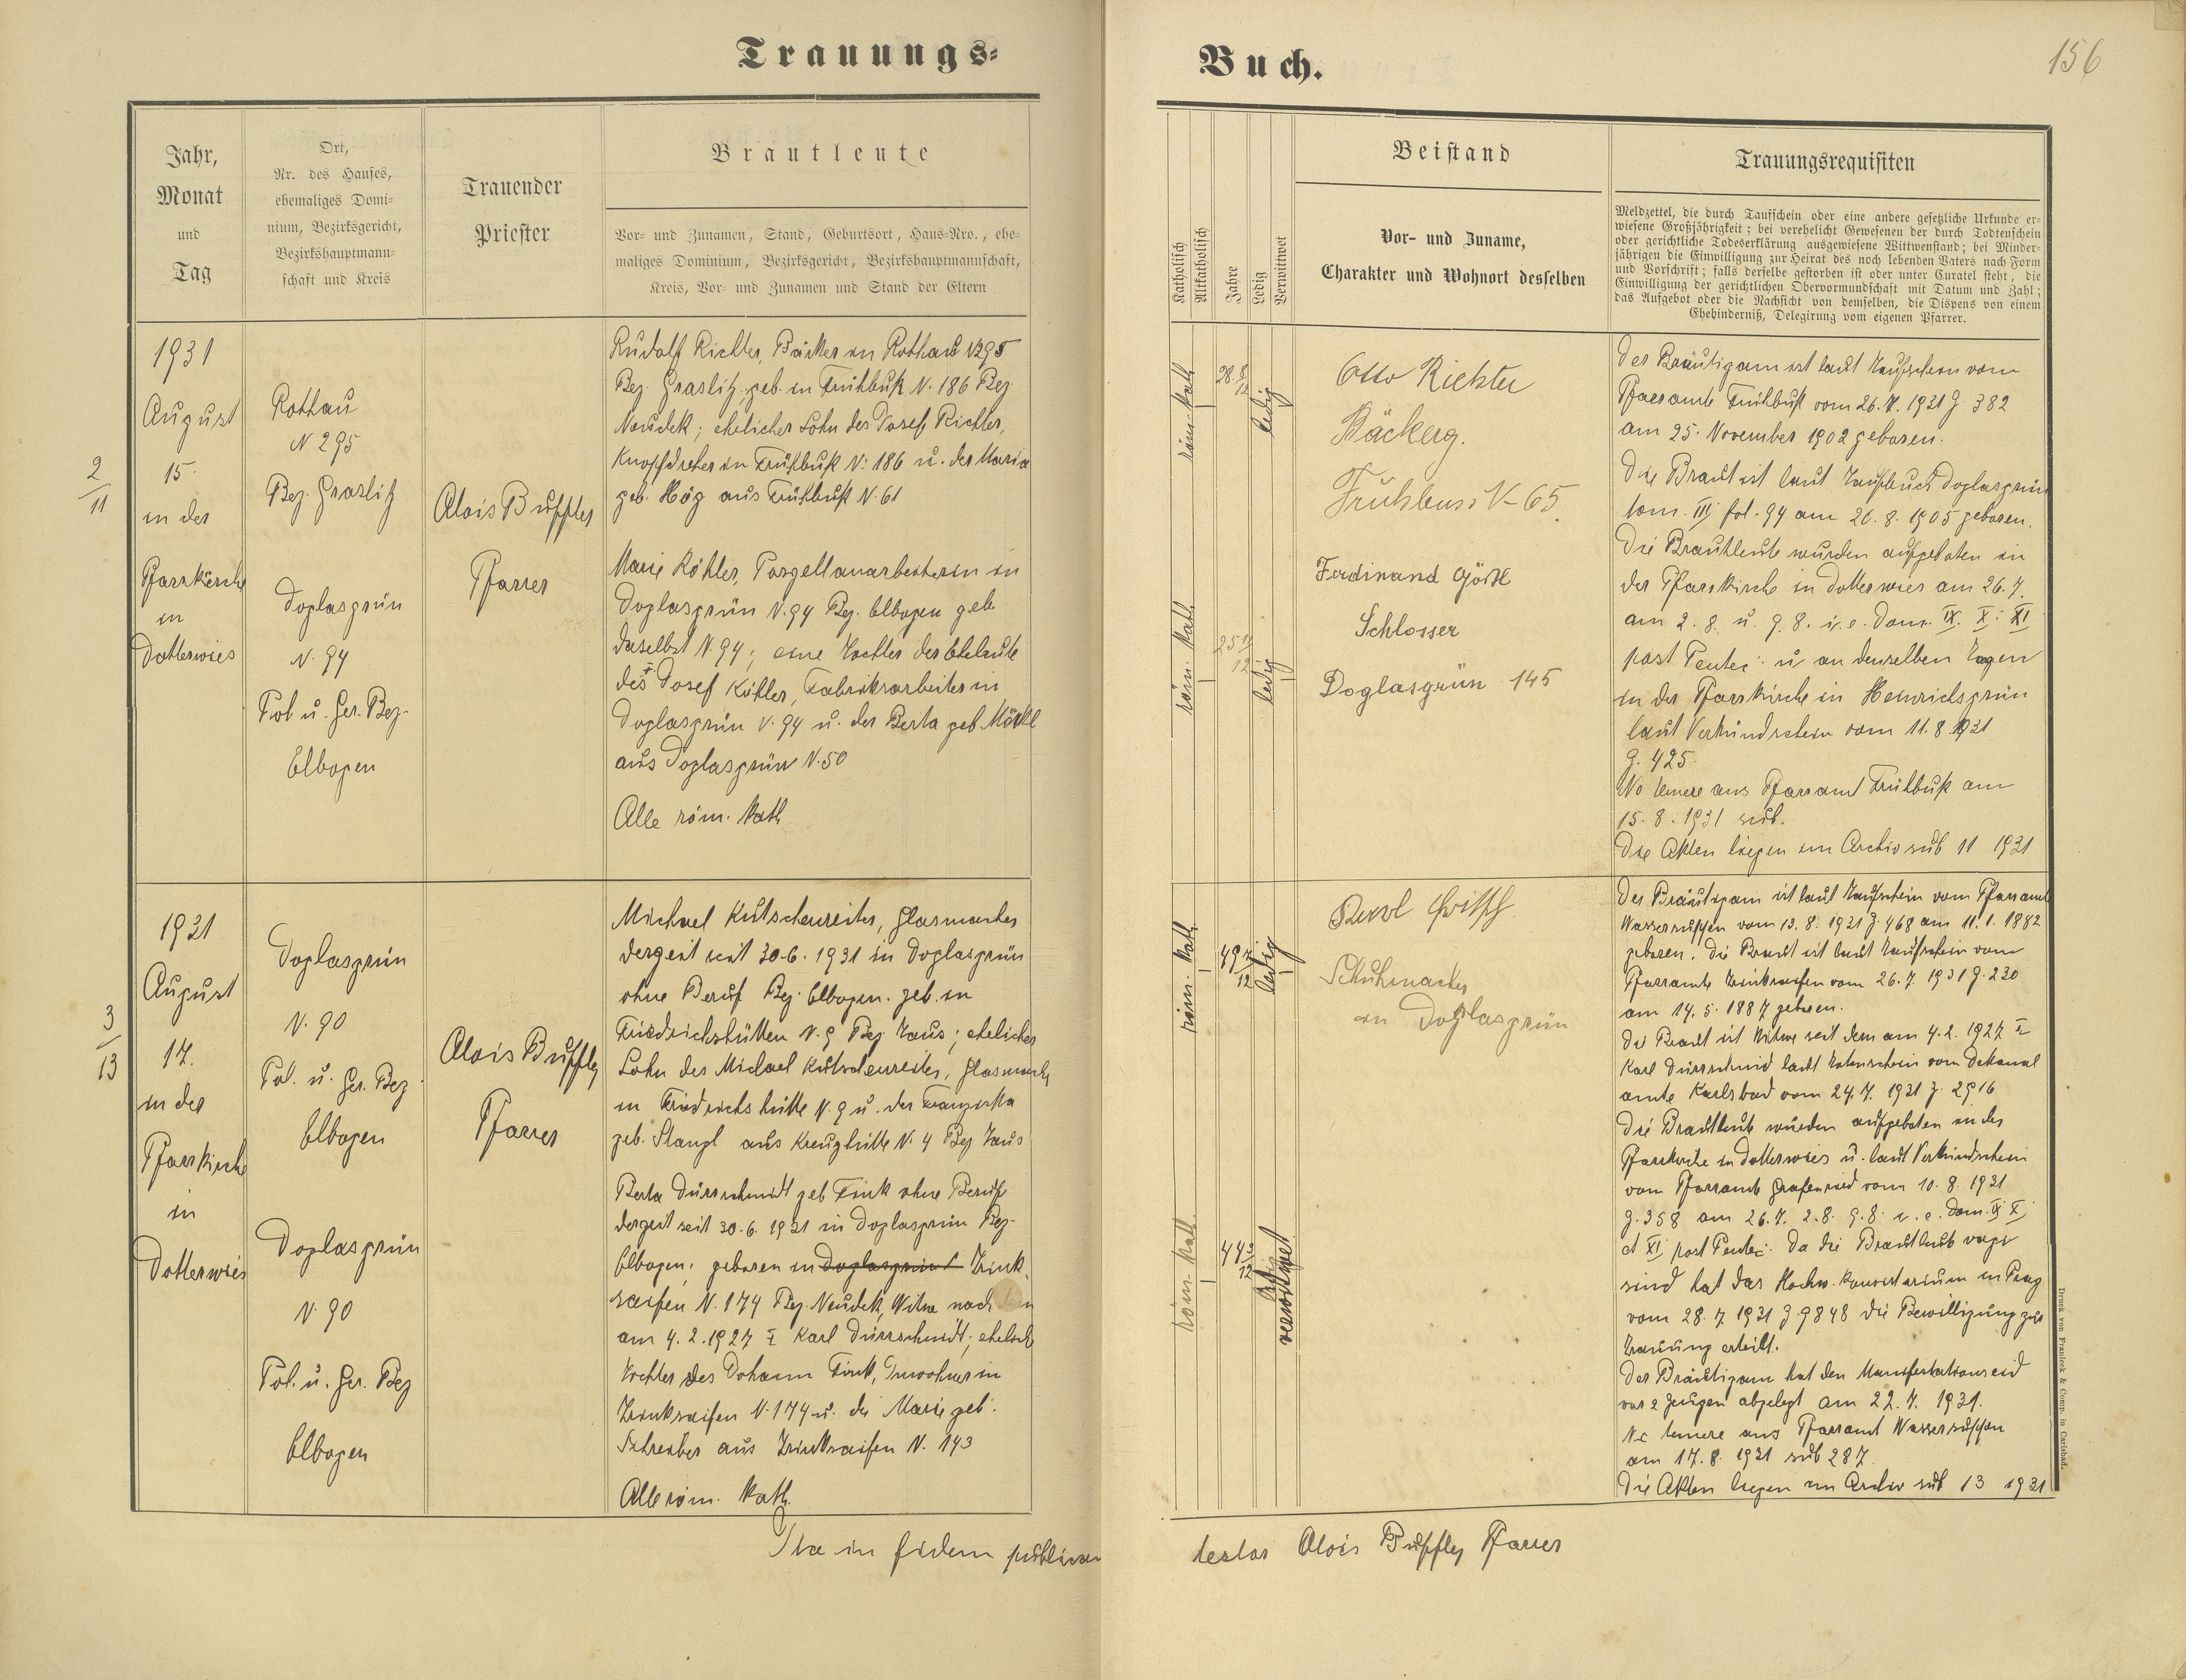 Trauungs-
Jahr,
Monat
und
Tag
Ort,
Nr. des Hauses,
ehemaliges Domi-
nium, Bezirksgericht,
Bezirkshauptmann-
schaft und Kreis
Trauender
Priester
Brautleute
Vor- und Zunamen, Stand, Geburtsort, Haus-Nro., ehe-
maliges Dominium, Bezirksgericht, Bezirkshauptmannschaft,
Kreis, Vor- und Zunamen und Stand der Eltern
2/11
1931
August
15.
in der
Pfarrkirche
in
Dotterwies
Rothau
N 295
Bez. Graslitz
Doglasgrün
N. 94
Pol u. Ger. Bez.
Elbogen
Alois Buffler
Pfarrer
Rudolf Richter, Bäcker in Rothau N295
Bez. Graslitz, geb. in Frühbuß N. 186 Bez.
Neudek; ehelicher Sohn des Josef Richter,
Knopfdreher in Frühbuß N. 186 u. der Maria
geb. Hög aus Frühbuß N. 61
Marie Köhler, Porzellanarbeiterin in
Doglasgrün N. 94 Bez. Elbogen geb.
daselbst N. 94; eine Tochter der Eheleute
des † Josef Köhler, Fabriksarbeiter in
Doglasgrün N. 94 u. der Berta geb. Möckl
aus Doglasgrün N. 50
Alle röm. kath
3/13
1931
August
17.
in der
Pfarrkirche
in
Dotterwies
Doglasgrün
N. 90
Pol. u. Ger. Bez.
Elbogen
Doglasgrün
N. 90
Pol. u. Ger. Bez
Elbogen
Alois Buffler
Pfarrer
Michael Kutschenreiter, Glasmacher
derzeit seit 30.6.1931 in Doglasgrün
ohne Beruf Bez. Elbogen. geb. in
Friedrichshütten N. 9 Bez Taus; ehelicher
Sohn des Michael Kutschenreiter, Glasmacher
in Friedrichshütte N. 9 u. der Franziska
geb. Stangl aus Kreuzhütte N. 4 Bez Taus
Berta Dürrschmidt geb Fink ohne Beruf
derzeit seit 30.6.1931 in Doglasgrün Bez.
Elbogen; geboren in Doglasgrün Trink
saifen N. 174 Bez. Neudek, Witwe nach dem
am 4.2.1927 † Karl Dürrschmidt; eheliche
Tochter des Johann Fink, Inwohner in
Trinksaifen N. 174 u. der Marie geb.
Schreiber aus Trinksaifen N. 143
Alle röm. kath.
Ita in fidem publicam
Buch.
156
Katholisch
Altkatholisch
Jahre
Ledig
Verwittwet
Beistand
Vor- und Zuname,
Charakter und Wohnort desselben
Trauungsrequisiten
Meldzettel, die durch Taufschein oder eine andere gesetzliche Urkunde er-
wiesene Großjährigkeit; bei verehelicht Gewesenen der durch Todtenschein
oder gerichtliche Todeserklärung ausgewiesene Wittwenstand; bei Minder-
jährigen die Einwilligung zur Heirat des noch lebenden Vaters nach Form
und Vorschrift; falls derselbe gestorben ist oder unter Curatel steht, die
Einwilligung der gerichtlichen Obervormundschaft mit Datum und Zahl;
das Aufgebot oder die Nachsicht von demselben, die Dispens von einem
Ehehinderniß, Delegirung vom eigenen Pfarrer.
röm. kath
28 8/12
ledig
röm. kath
25 11/12
ledig
Otto Richter
Bäckerg.
Frühbuss N-65.
Ferdinand Gördl
Schlosser
Doglasgrün 145
Der Bräutigam ist laut Taufschein vom
Pfarramte Frühbuß vom 26.7.1931 Z. 382
am 25. November 1902 geboren.
Die Braut ist laut Taufbuch Doglasgrün
tom. III fol. 94 am 26.8.1905 geboren.
Die Brautleute wurden aufgeboten in
der Pfarrkirche in Dotterwies am 26.7.
am 2.8. u. 9.8. i.e. Dom. IX. X. XI
post Pentec. u an denselben Tagen
in der Pfarrkirche in Heinrichsgrün
laut Verkündschein vom 11.8.1931
Z. 425.
Ne temere ans Pfarramt Frühbuß am
15.8.1931 sub.
Die Akten liegen im Archiv sub 11 1931
röm. kath
49 7/12
ledig
röm. kath.
44 3/12
verwitwet
Schuhmacher
in Doglasgrün
Der Bräutigam ist laut Taufschein vom Pfarramt
Wassersuppen vom 13.8.1931 Z. 468 am 11.1.1882
geboren. Die Braut ist laut Taufschein vom
Pfarramte Trinksaifen vom 26.7.1931 Z. 230
am 14.5.1887 geboren.
Die Braut ist Witwe seit dem am 4.2.1927 †
Karl Dürrschmid laut Totenschein vom Dekanal
amte Karlsbad vom 24.7.1931 Z. 2916
Die Brautleute wurden aufgeboten in der
Pfarrkirche in Dotterwies u. laut Verkündschein
vom Pfarramte Grafenried vom 10.8.1931
Z. 358 am 26.7. 2.8. 9.8. i.e. Dom. IX X
et XI post Pentec. Da die Brautleute vagi
sind hat das Hochw. Konsistorium in Prag
vom 28.7.1931 Z 9848 die Bewilligung zur
Trauung erteilt.
Der Bräutigam hat den Manifestationseid
vor 2 Zeugen abgelegt am 22.7.1931.
Ne temere ans Pfarramt Wassersuppen
am 17.8.1931 sub 287.
Die Akten liegen im Archiv sub 13 1931
testor Alois Buffler Pfarrer
Druck von Franieck & Comp. in Carlsbad.